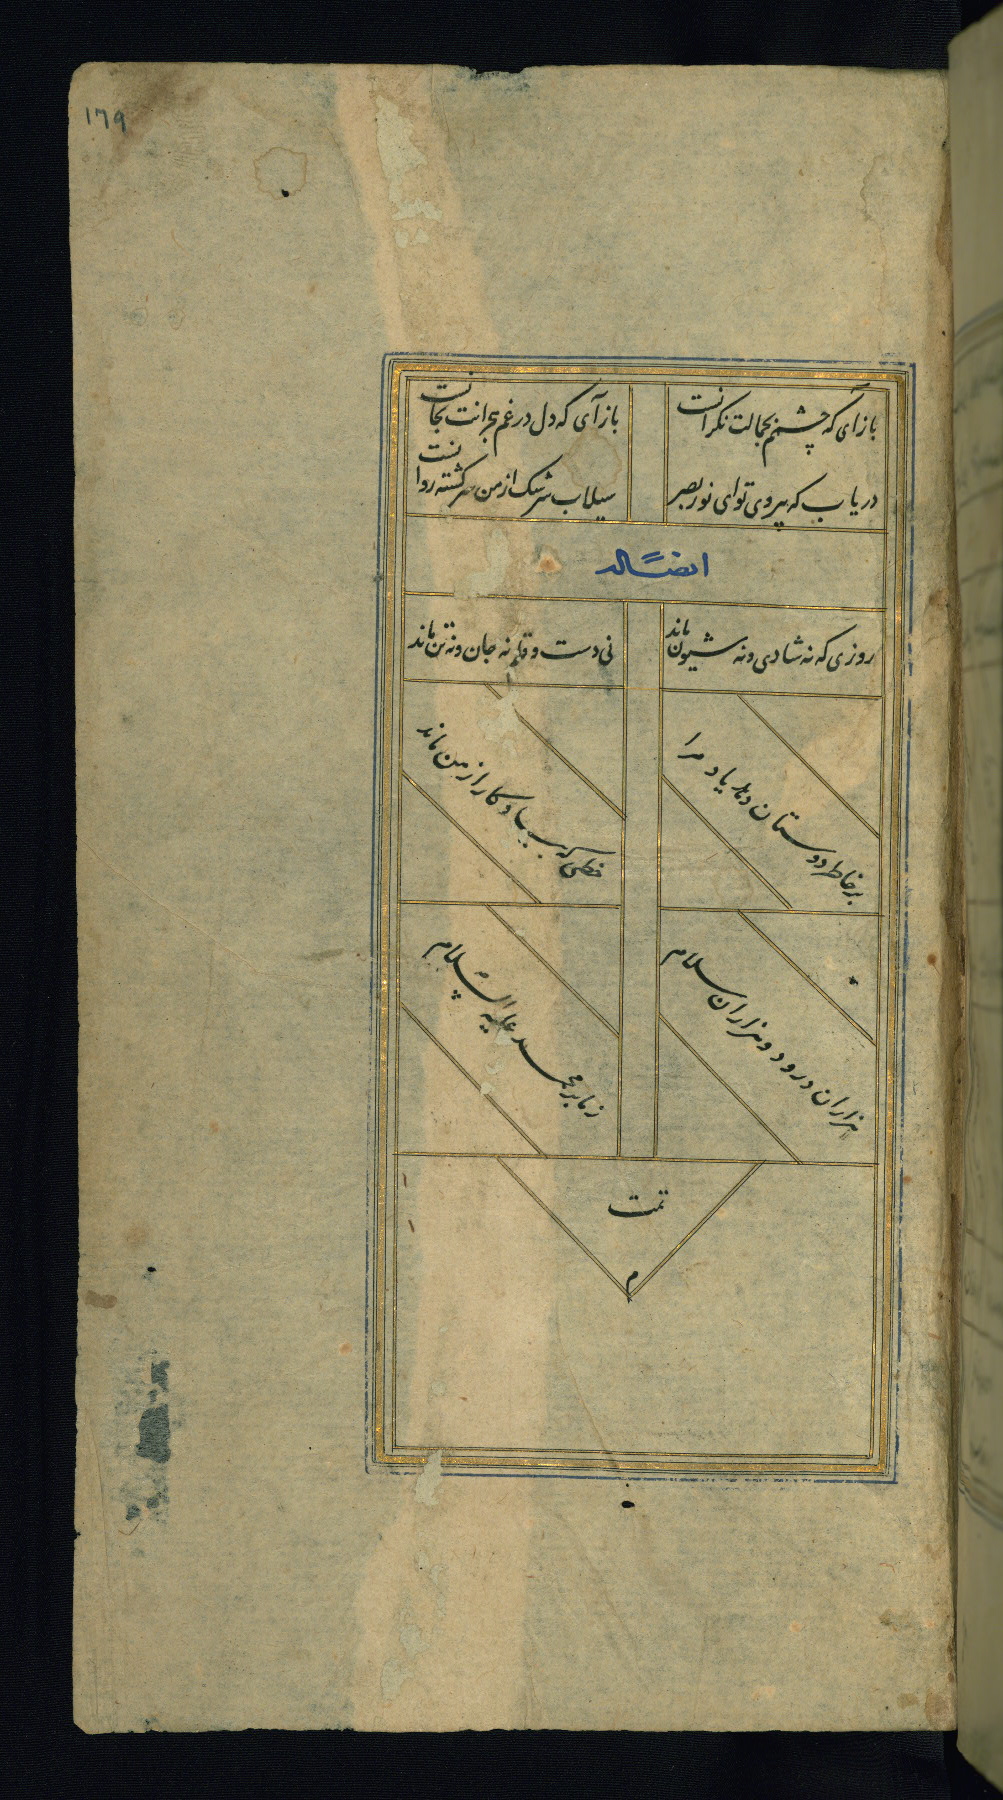 ۱۷۹
بازآی که چشمم بجمالت نکرانست
بازآی که دل در غم هجرانت بجانست
دریاب که بیروی تو ای نور بصر
سیلاب سرشک از من سرکشته روانست
ایضاله
روزی که نه شادی و نه شیون ماند
نی دست و قلم نه جان و نه تن ماند
بر خاطر دوستان دهد یاد مرا
خطی که بیادکار از من ماند
هزاران درود و هزاران سلام
زما بر محمد علیه السّلام
تمت
م